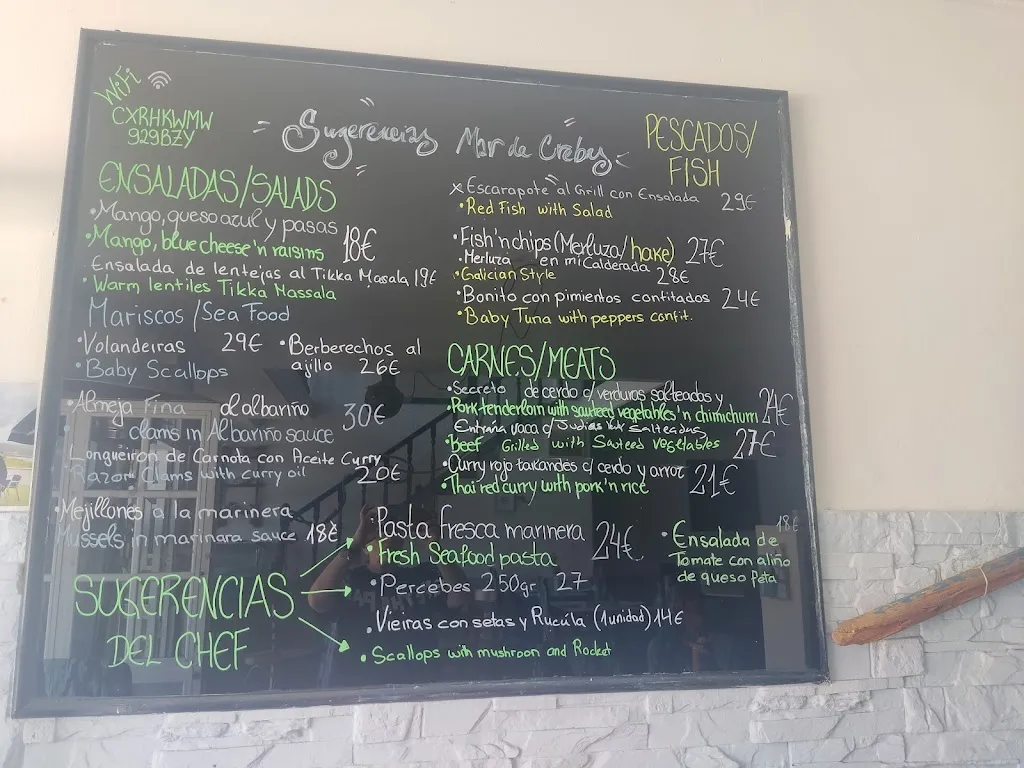 WiFi
CXRHKWMW
929BZY
Sugerencias Mar de Crebas
ENSALADAS/SALADS
•Mango, queso azul y pasas 18€
•Mango, blue cheese'n raisins
Ensalada de lentejas al Tikka Masala 19€
•Warm lentiles Tikka Massala
Mariscos/Sea Food
•Volandeiras 29€
•Baby Scallops
•Berberechos al
ajillo 26€
•Almeja Fina al albariño 30€
clams in Albariño sauce
Longueiron de Carnota con Aceite Curry
Razor Clams with curry oil 20€
•Mejillones a la marinera
Mussels in marinara sauce 18€
PESCADOS/
FISH
x Escarapote al Grill con Ensalada 29€
•Red Fish with Salad
•Fish'n chips (Merluza/hake) 27€
•Merluza en mi Calderada 28€
•Galician Style
•Bonito con pimientos confitados 24€
•Baby Tuna with peppers confit.
CARNES/MEATS
•Secreto de cerdo c/ verduras salteadas y
•Pork tenderloin with sauteed vegetables'n chimichurri 24€
Entraña vaca c/ Judias Salteadas
•Beef Grilled with Sauteed vegetables 27€
•Curry rojo tailandes c/ cerdo y arroz 21€
•Thai red curry with pork'n rice
SUGERENCIAS
DEL CHEF
•Pasta fresca marinera 24€
•Fresh Seafood pasta
•Percebes 250gr 27
•Vieiras con setas y Rucúla (1unidad) 14€
•Scallops with mushroon and Rocket
18€
•Ensalada de
Tomate con aliño
de queso Feta